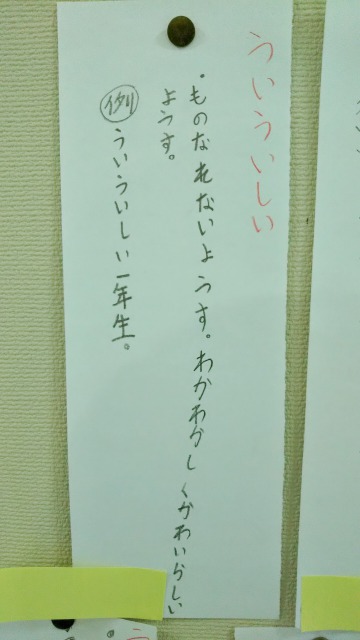 ういういしい
・ものなれないようす。わかわかしくかわいらしい
ようす。
例 ういういしい一年生。